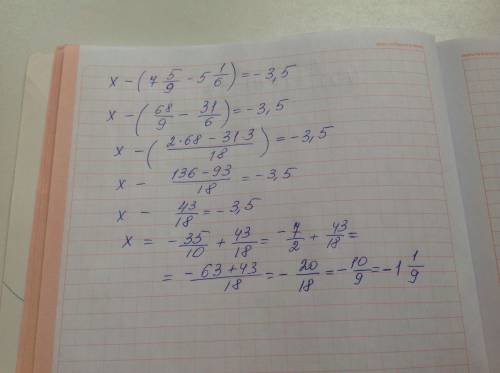 x - (7 5/9 - 5 1/6) = -3,5
x - (68/9 - 31/6) = -3,5
x - ((2·68 - 31·3)/18) = -3,5
x - (136 - 93)/18 = -3,5
x - 43/18 = -3,5
x = -35/10 + 43/18 = -7/2 + 43/18 =
= (-63 + 43)/18 = -20/18 = -10/9 = -1 1/9